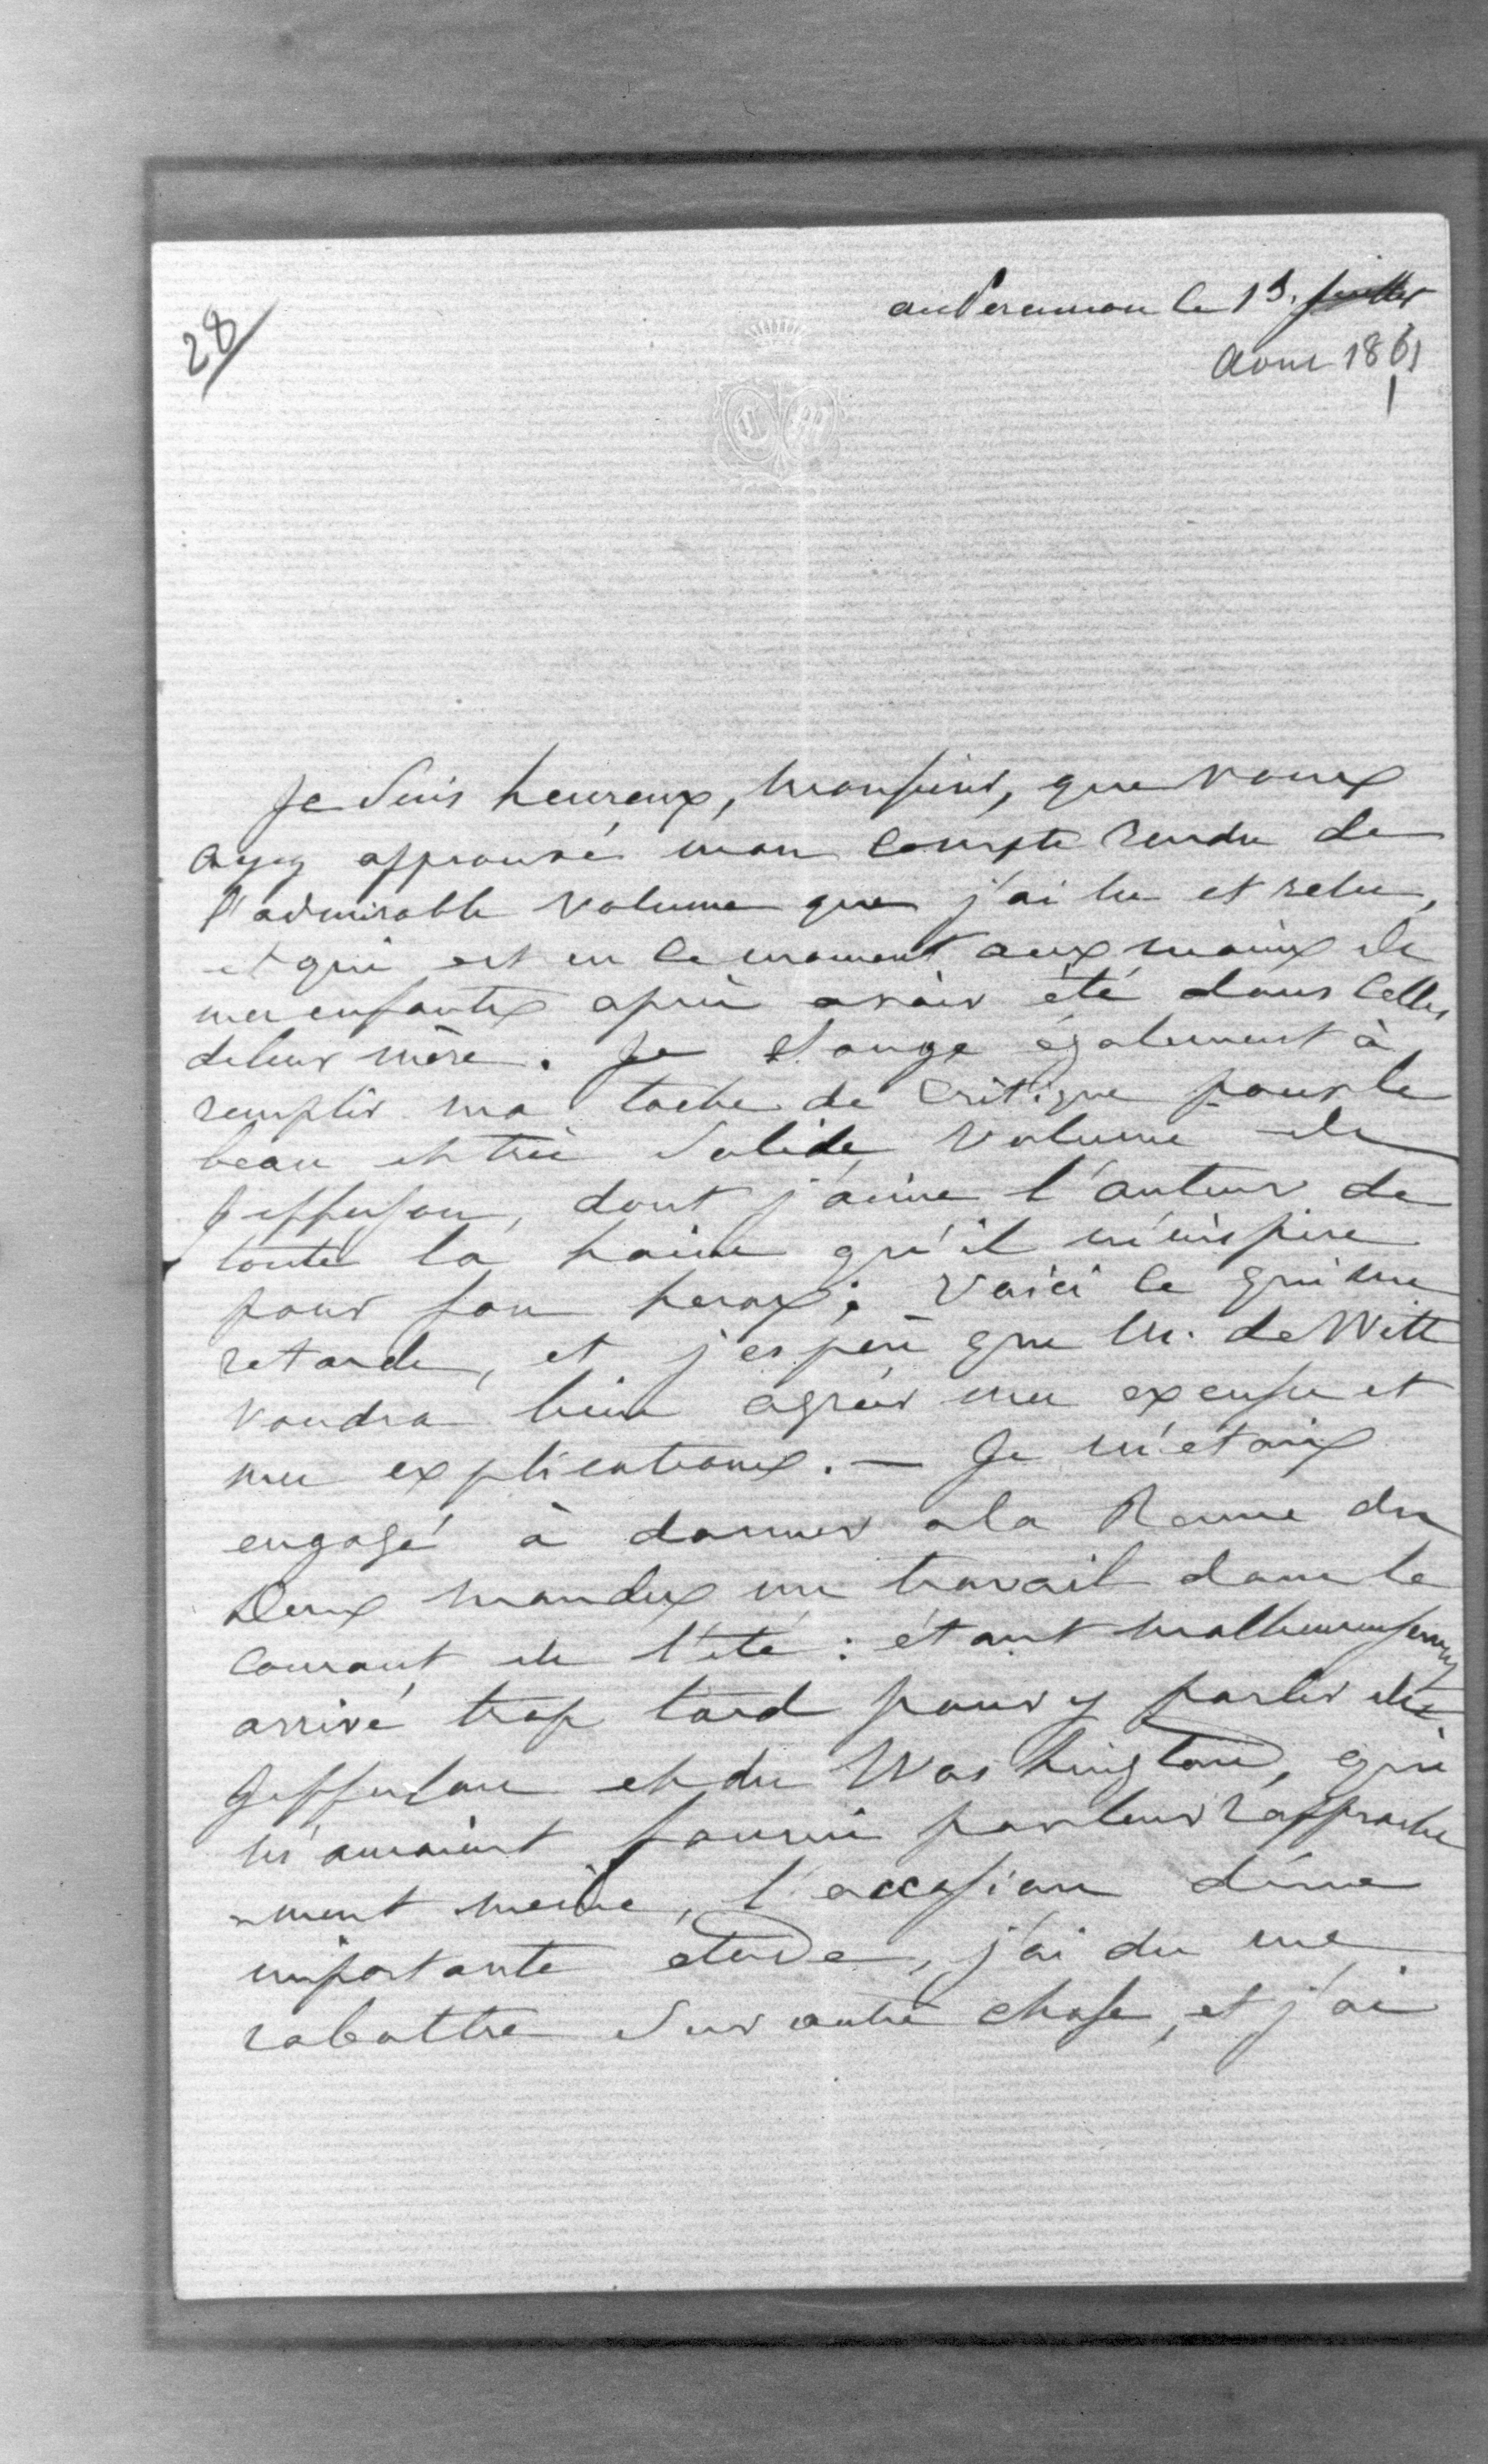 28
au Peramon le 13. juillet
Aout 1861
C M
Je suis heureux, Monsieur, que vous
ayez approuvé mon compte rendu de
l'admirable volume que j'ai lu et relu,
et qui est en ce moment aux mains de
mes enfants après avoir été dans celles
de leur mère. Je songe également à
remplir ma tache de critique pour le
beau et très solide volume de
Jefferson, dont j'aime l'auteur de
toute la haine qu'il m'inspire
pour son heros; voici ce qui me
retarde, et j'espère que M. de Witt
voudra bien agréer mes excuses et
mes explications. — Je m'etais
engagé à donner a la Revue des
Deux mondes un travail dans le
courant de l'été : étant malheureusement
arrivé trop tard pour y parler du
Jefferson et du Washington, qui
m'auraient fourni par leur rapproche
-ment même, l'occasion d'une
importante etude, j'ai du me
rabattre sur autre chose, et j'ai